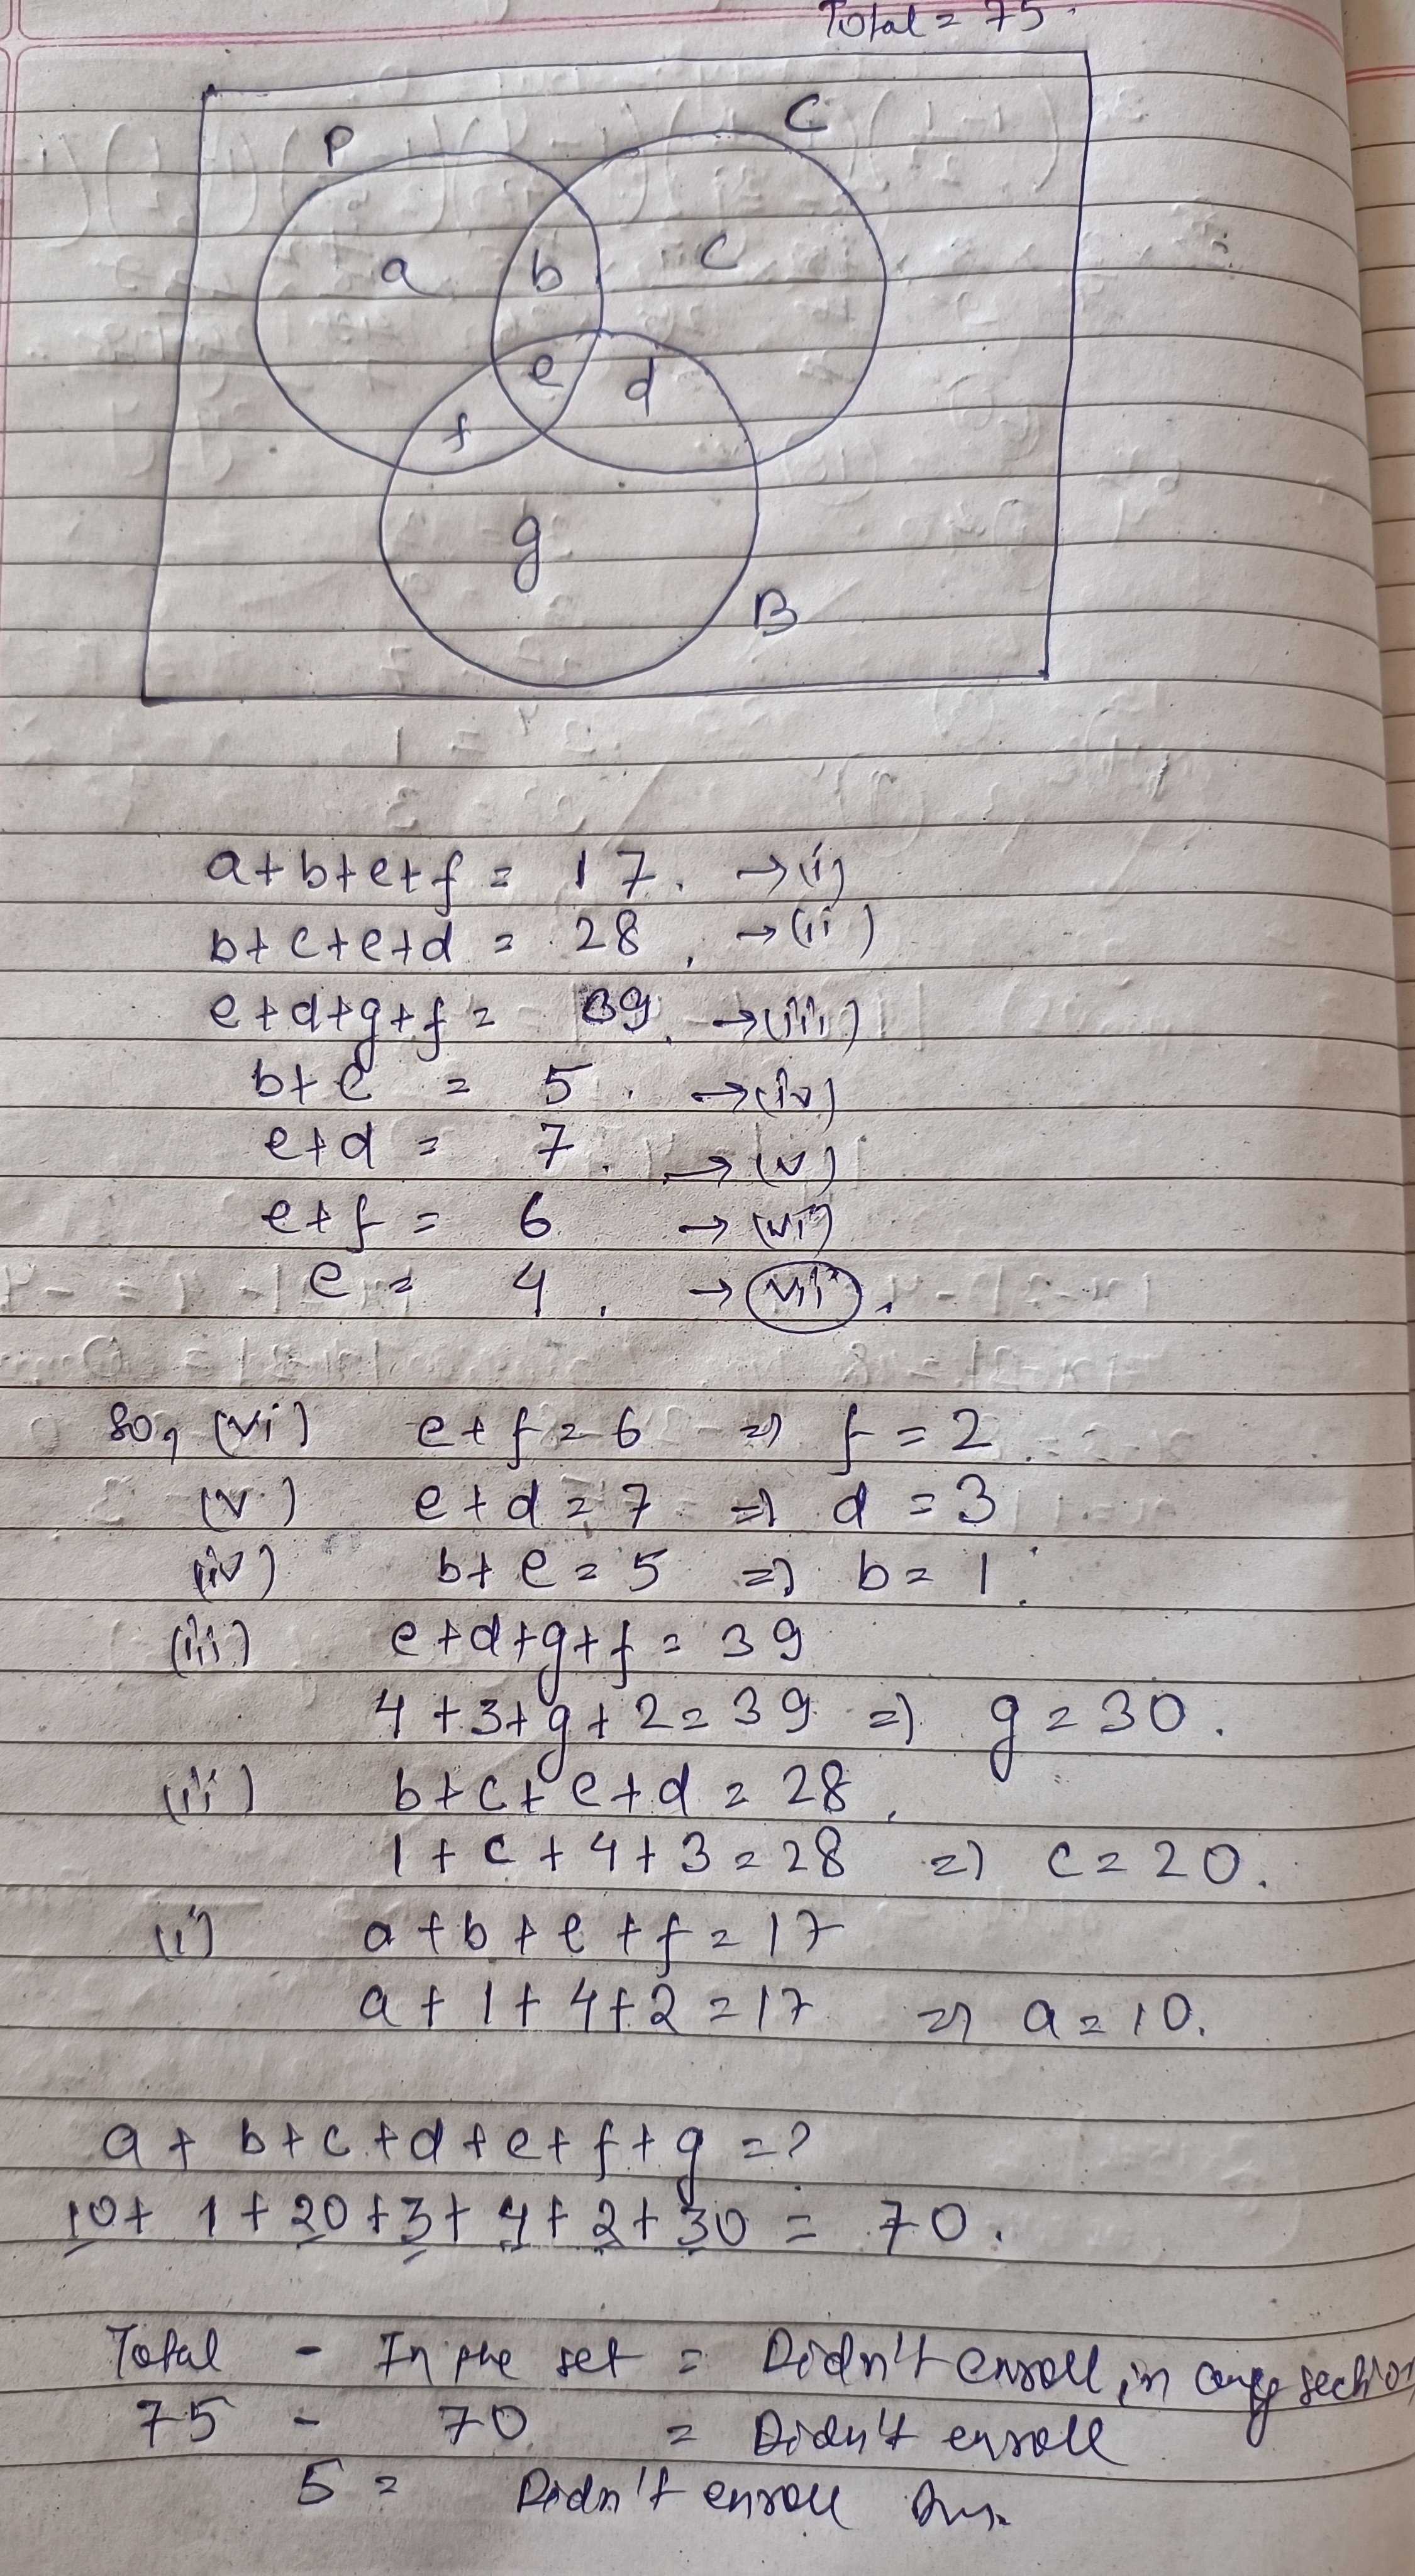 Total = 75.
P
C
a
b
c
e
d
f
g
B
a+b+e+f = 17. →(i)
b+c+e+d = 28, →(ii)
e+d+g+f = 39. →(iii)
b+e = 5. →(iv)
e+d = 7. →(v)
e+f = 6 →(vi)
e = 4. →(vii).
So, (vi) e+f=6 => f=2.
(v) e+d=7 => d=3
(iv) b+e=5 => b=1.
(iii) e+d+g+f=39
4+3+g+2=39 => g=30.
(ii) b+c+e+d=28,
1+c+4+3=28 => c=20.
(i) a+b+e+f=17
a+1+4+2=17 => a=10.
a+b+c+d+e+f+g=?
10+1+20+3+4+2+30=70.
Total - In the set = Didn't enroll in any section
75 - 70 = Didn't enroll
5 = Didn't enroll Ans.